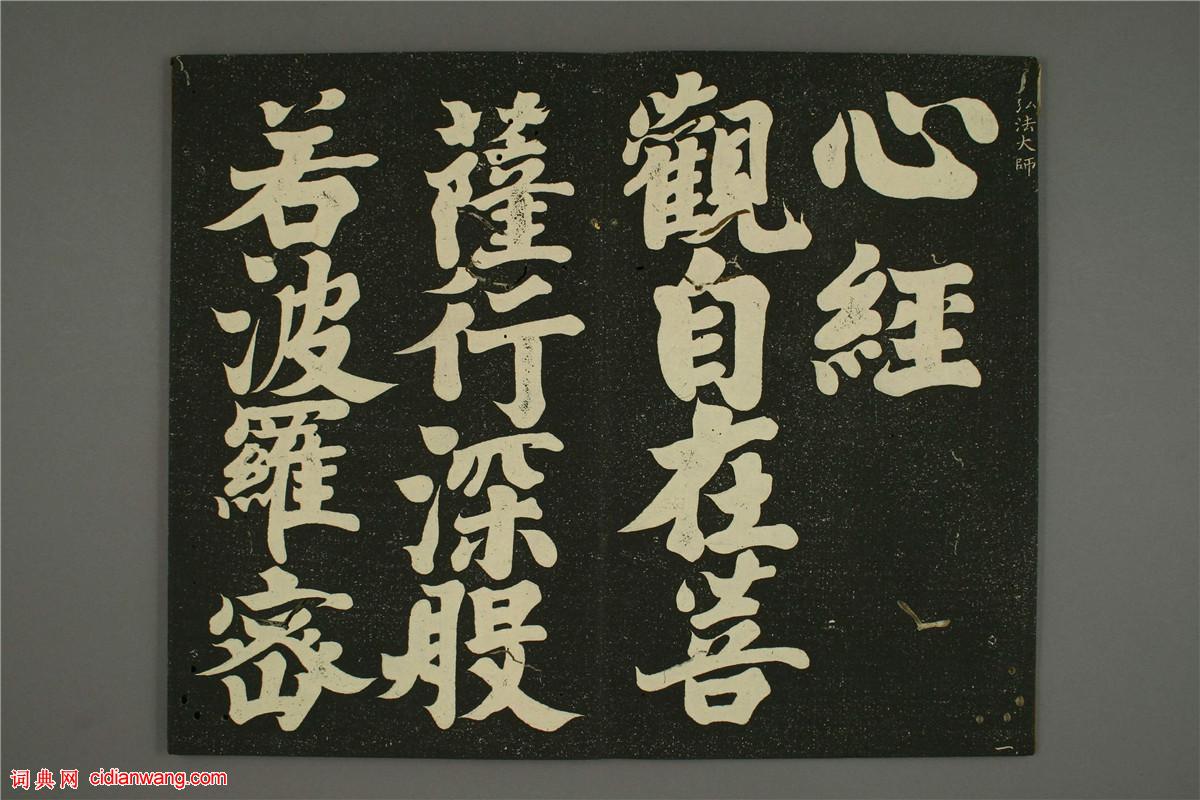 弘法大師
心經
觀自在菩
薩行深股
若波羅密
一
词典网 cidianwang.com